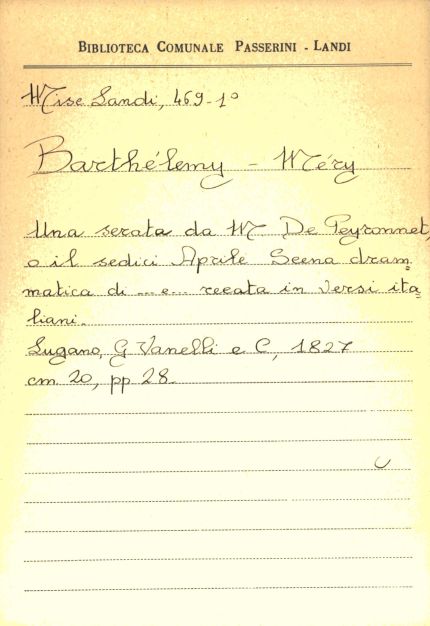 BIBLIOTECA COMUNALE PASSERINI - LANDI
Misc Landi, 469-1º
Barthélemy - Méry
Una serata da M De Peyronnet,
o il sedici Aprile Scena dram
matica di ... e... recata in versi ita
liani.
Lugano, G Vanelli e C, 1827
cm 20, pp 28.